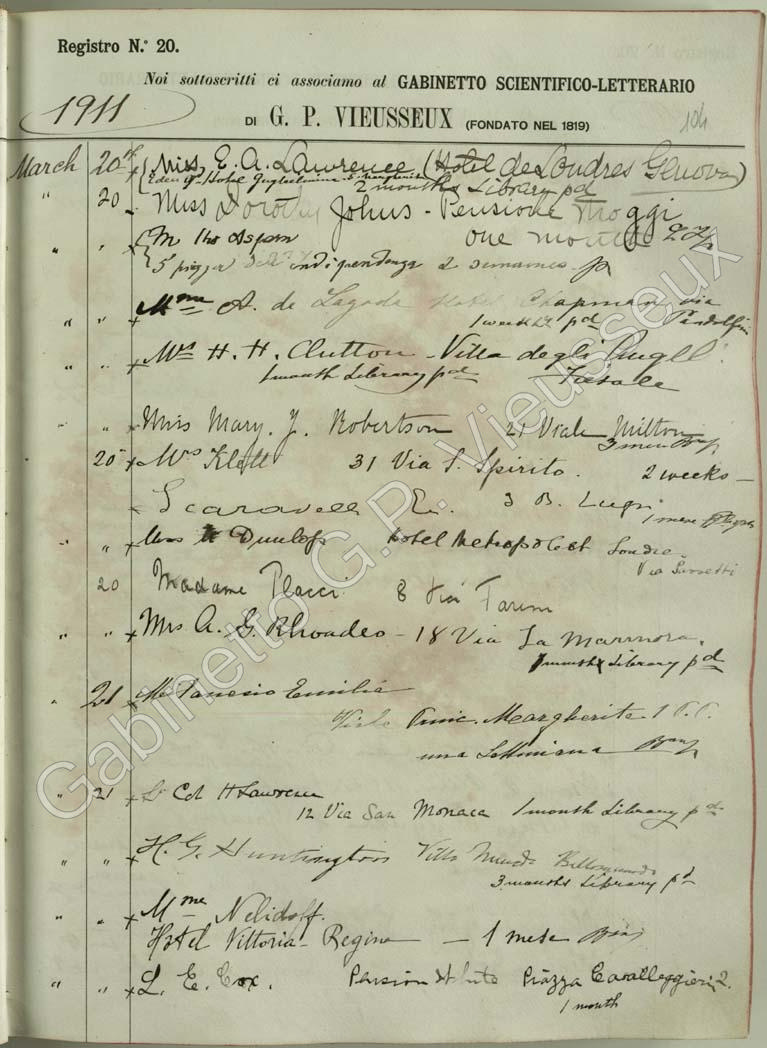 Registro N.° 20.
Noi sottoscritti ci associamo al GABINETTO SCIENTIFICO-LETTERARIO
1911
DI G. P. VIEUSSEUX (FONDATO NEL 1819)
104
March 20th Miss E. A. Lawrence (Hotel de Londres Genova)
Eden Gd Hotel
2 months Library pd
" 20 Miss Dorothy Johns - Pensione Moggi
one month
" " M
5 piazza indipendenza 2
" " Mme A. de Hotel Chapman via
1 week pd Pandolfini
" " Mrs H. H. Clutton - Villa degli
1 month Library pd Fiesole
" " Miss Mary. J. Robertson 21 Viale Milton
3
20 Mrs 31 Via S. Spirito. 2 weeks -
Scaravelli 3 B.
1 mese
" " Miss Dunlop Hotel Metropole et Londres
Via Sassetti
20 Madame Placci 8 Via
" " Mrs A. G. Rhoades - 18 Via La Marmora.
1 month Library pd
" 21 Emilia
Viale Margherita 1
una Settimana
" 21 Lt Col H Lawrence
12 Via San Monaca 1 month Library pd
" " H. G. Huntington Villa Bellosguardo
3 months Library pd
" " Mme Nelidoff.
Hotel Vittoria - Regina - 1 mese
" " L. E. Cox. Pension Piazza Cavalleggieri 2.
1 month
Gabinetto G.P. Vieusseux